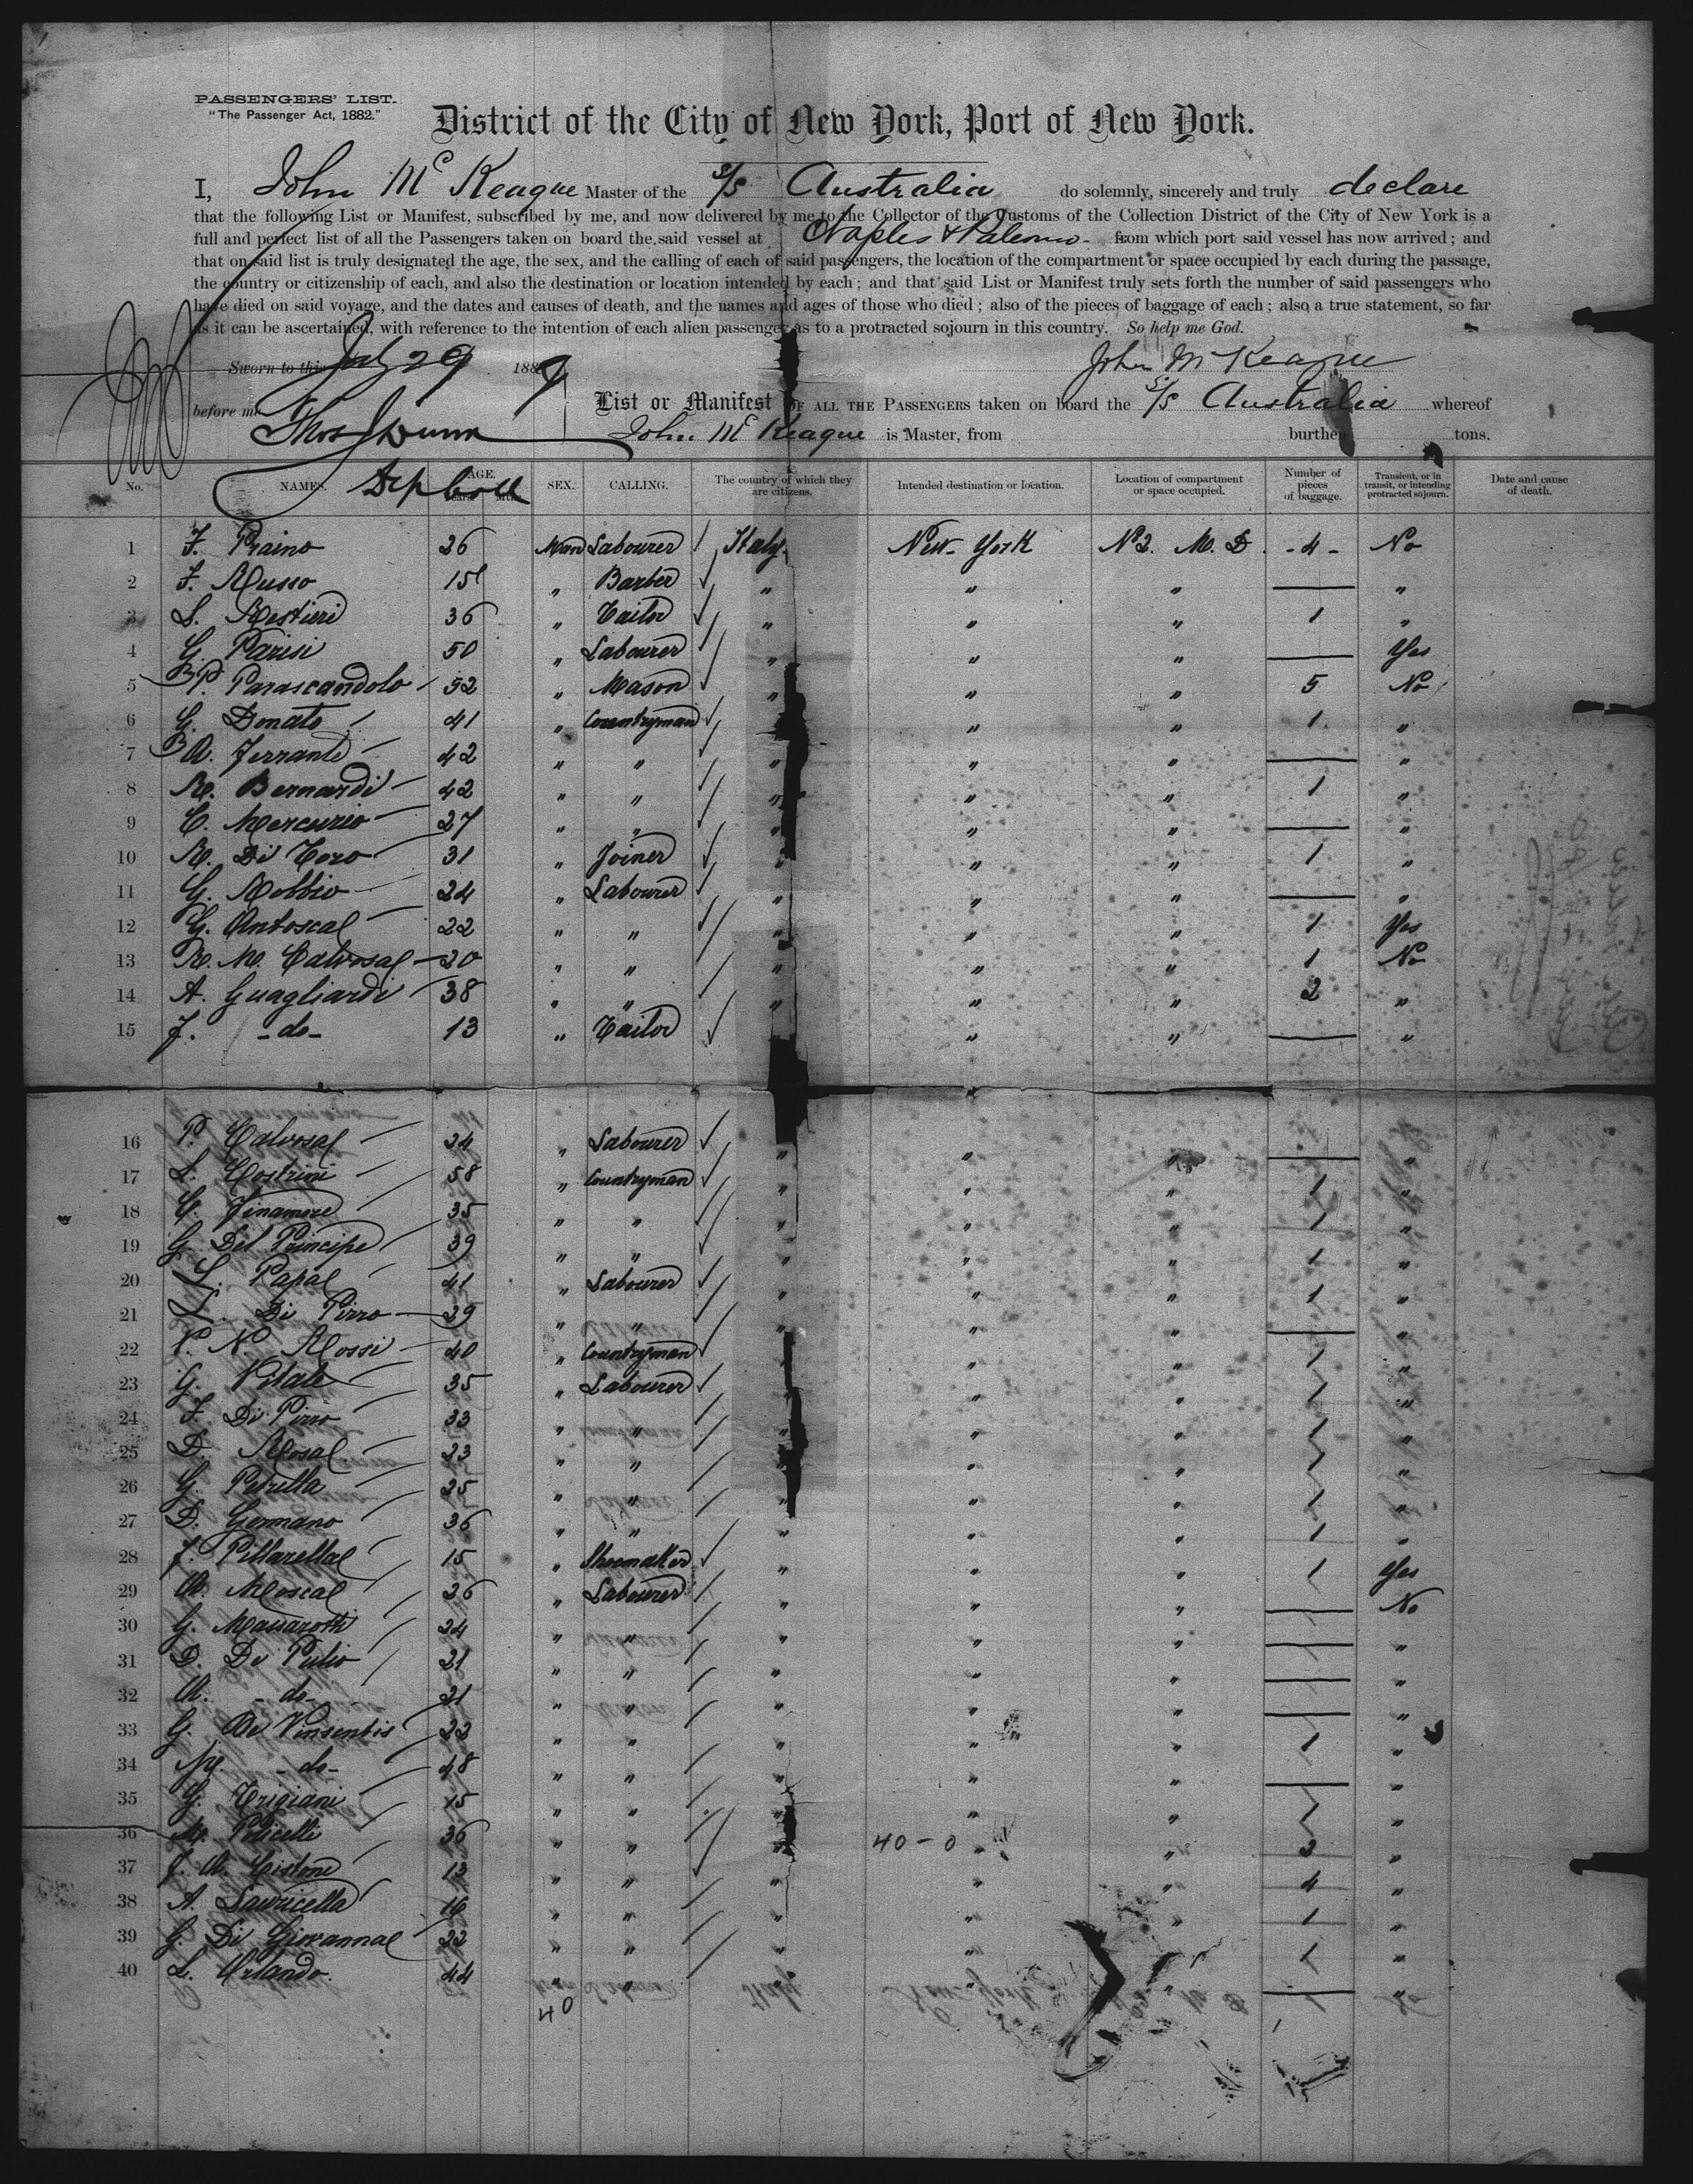 PASSENGERS' LIST.
"The Passenger Act, 1882."
District of the City of New York, Port of New York.
I, John Mc Keague Master of the S/S Australia do solemnly, sincerely and truly declare
that the following List or Manifest, subscribed by me, and now delivered by me to the Collector of the Customs of the Collection District of the City of New York is a
full and perfect list of all the Passengers taken on board the said vessel at Naples & Palermo- from which port said vessel has now arrived; and
that on said list is truly designated the age, the sex, and the calling of each of said passengers, the location of the compartment or space occupied by each during the passage,
the country or citizenship of each, and also the destination or location intended by each; and that said List or Manifest truly sets forth the number of said passengers who
have died on said voyage, and the dates and causes of death, and the names and ages of those who died; also of the pieces of baggage of each; also a true statement, so far
as it can be ascertained, with reference to the intention of each alien passenger as to a protracted sojourn in this country. So help me God.
Sworn to this July 29 1889 John McKeague
before me Thos J Dunn List or Manifest OF ALL THE PASSENGERS taken on board the S/S Australia whereof
John Mc Keague is Master, from burthen tons.
Dep Coll
No. NAMES. AGE. Years. Mths. SEX. CALLING. The country of which they are citizens. Intended destination or location. Location of compartment or space occupied. Number of pieces of baggage. Transient, or in transit, or intending protracted sojourn. Date and cause of death.
1 F. Praino 26 Man Labourer Italy. New-York No 2. M. D. -4- No
2 F. Russo 15 " Barber " " " — "
3 S. Restieri 36 " Tailor " " " 1 "
4 G. Parisi 50 " Labourer " " " — Yes
5 P. Parascandolo 52 " Mason " " " 5 No
6 G. Donato 41 " Countryman " " " 1 "
7 A. Ferrante 42 " " " " " — "
8 R. Bernardi 42 " " " " " 1 "
9 C. Mercurio 27 " " " " " — "
10 R. Di Toro 31 " Joiner " " " 1 "
11 G. Robbio 24 " Labourer " " " — "
12 G. Antosca 22 " " " " " 1 Yes
13 R. M. Calvosa 20 " " " " " 1 No
14 A. Guagliardi 38 " " " " " 2 "
15 F. -do- 13 " Tailor " " " — "
16 P. Calvosa 24 " Labourer " " " — "
17 L. Costrini 58 " Countryman " " " 1 "
18 C. Finamore 35 " " " " " 1 "
19 G. Del Principe 39 " " " " " 1 "
20 L. Papa 41 " Labourer " " " 1 "
21 L. Di Pirro 29 " " " " " — "
22 N. Rossi 40 " Countryman " " " 1 "
23 G. Vitale 35 " Labourer " " " 1 "
24 F. Di Pirro 33 " " " " " 1 "
25 D. Rosa 23 " " " " " 1 "
26 G. Petrella 25 " " " " " 1 "
27 D. Germano 36 " " " " " 1 "
28 F. Pillarella 15 " Shoemaker " " " 1 Yes
29 A. Mosca 26 " Labourer " " " — No
30 G. Massarotti 24 " " " " " — "
31 D. De Julio 21 " " " " " — "
32 A. -do- 21 " " " " " — "
33 G. De Vinsentis 22 " " " " " 1 "
34 -do- 48 " " " " " — "
35 G. Trigiani 15 " " " " " 1 "
36 M. Policelli 36 " " " 40-0 " " 3 "
37 F. A. Cistone 13 " " " " " 4 "
38 A. Lauricella 16 " " " " " 1 "
39 G. Di Giovanna 22 " " " " " 1 "
40 L. Orlando. 44 " " " " " — "
40